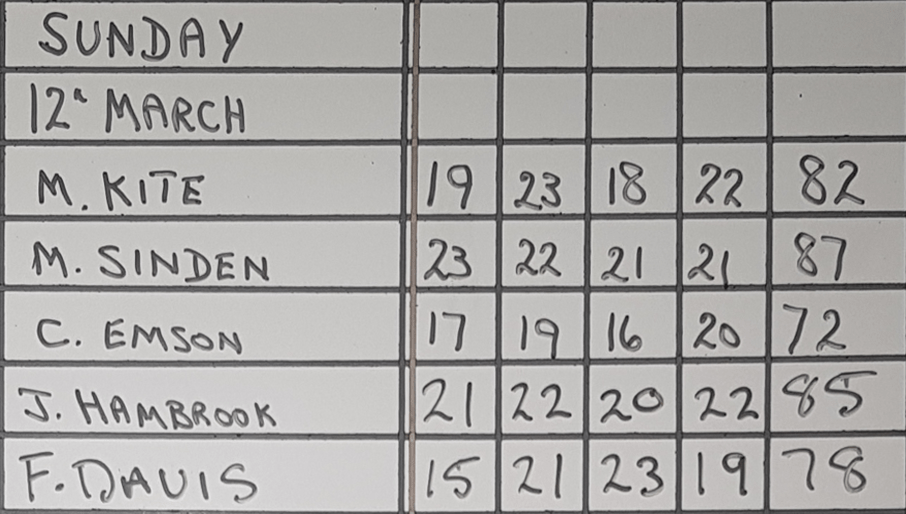 SUNDAY
12th MARCH
M. KITE 19 23 18 22 82
M. SINDEN 23 22 21 21 87
C. EMSON 17 19 16 20 72
J. HAMBROOK 21 22 20 22 85
F. DAVIS 15 21 23 19 78